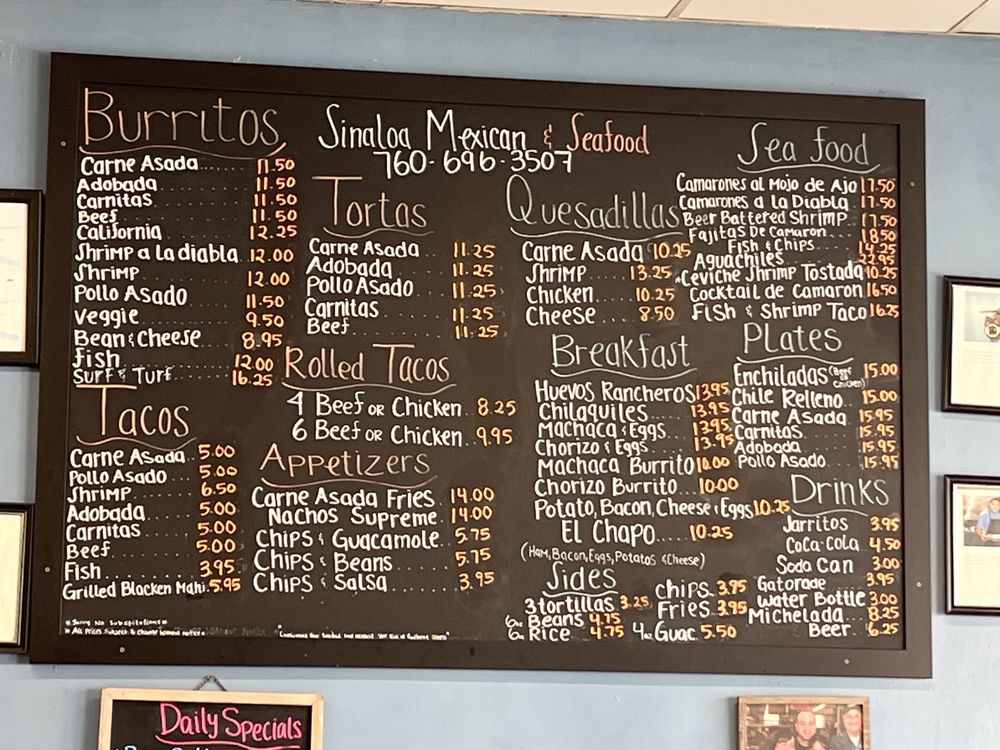 Sinaloa Mexican & Seafood
760-696-3507
Burritos
Carne Asada 11.50
Adobada 11.50
Carnitas 11.50
Beef 11.50
California 12.25
Shrimp a la diabla 12.00
Shrimp 12.00
Pollo Asado 11.50
Veggie 9.50
Bean & Cheese 8.95
fish 12.00
Surf & Turf 16.25
Tacos
Carne Asada 5.00
Pollo Asado 5.00
Shrimp 6.50
Adobada 5.00
Carnitas 5.00
Beef 5.00
Fish 3.95
Grilled Blacken Mahi 5.95
Tortas
Carne Asada 11.25
Adobada 11.25
Pollo Asado 11.25
Carnitas 11.25
Beef 11.25
Rolled Tacos
4 Beef or Chicken 8.25
6 Beef or Chicken 9.95
Appetizers
Carne Asada Fries 14.00
Nachos Supreme 14.00
Chips & Guacamole 5.75
Chips & Beans 5.75
Chips & Salsa 3.95
Quesadillas
Carne Asada 10.25
Shrimp 13.25
Chicken 10.25
Cheese 8.50
Breakfast
Huevos Rancheros 13.95
Chilaquiles 13.95
Machaca & Eggs 13.95
Chorizo & Eggs 13.95
Machaca Burrito 10.00
Chorizo Burrito 10.00
Potato, Bacon, Cheese & Eggs 10.25
El Chapo 10.25
(Ham, Bacon, Eggs, Potatos & Cheese)
Sides
3 tortillas 3.25
6oz Beans 4.75
6oz Rice 4.75
chips 3.95
Fries 3.95
4oz Guac 5.50
Sea food
Camarones al Mojo de Ajo 17.50
Camarones a la Diabla 17.50
Beer Battered Shrimp 17.50
Fajitas De Camaron 18.50
Fish & Chips 14.25
Aguachiles 22.95
Ceviche Shrimp Tostada 10.25
Cocktail de Camaron 16.50
Fish & Shrimp Taco 16.25
Plates
Enchiladas (Beef or Chicken) 15.00
Chile Relleno 15.00
Carne Asada 15.95
Carnitas 15.95
Adobada 15.95
Pollo Asado 15.95
Drinks
Jarritos 3.95
Coca-Cola 4.50
Soda Can 3.00
Gatorade 3.95
Water Bottle 3.00
Michelada 8.25
Beer 6.25
* Sorry No Subsititutions *
* All Prices Subject to change without notice
Daily Specials